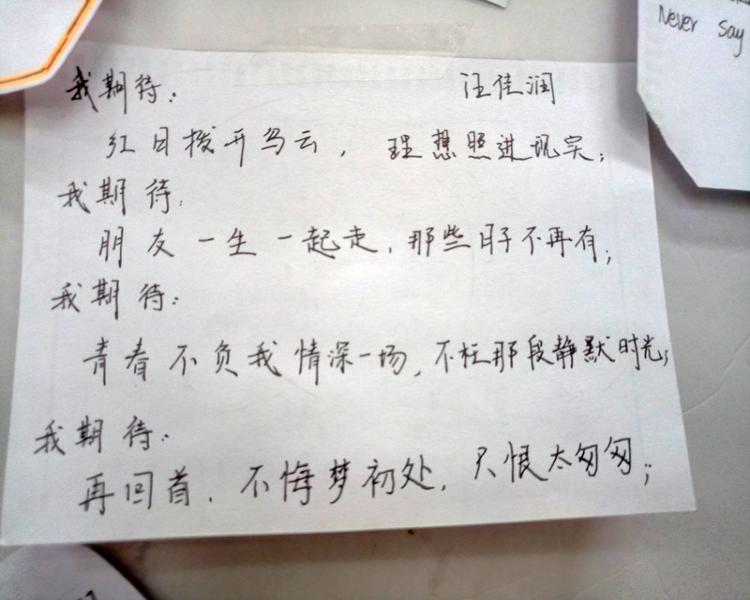 Never Say
我期待： 汪佳润
红日拨开乌云，理想照进现实；
我期待：
朋友一生一起走，那些日子不再有；
我期待：
青春不负我情深一场，不枉那段静默时光；
我期待：
再回首，不悔梦初处，只恨太匆匆；